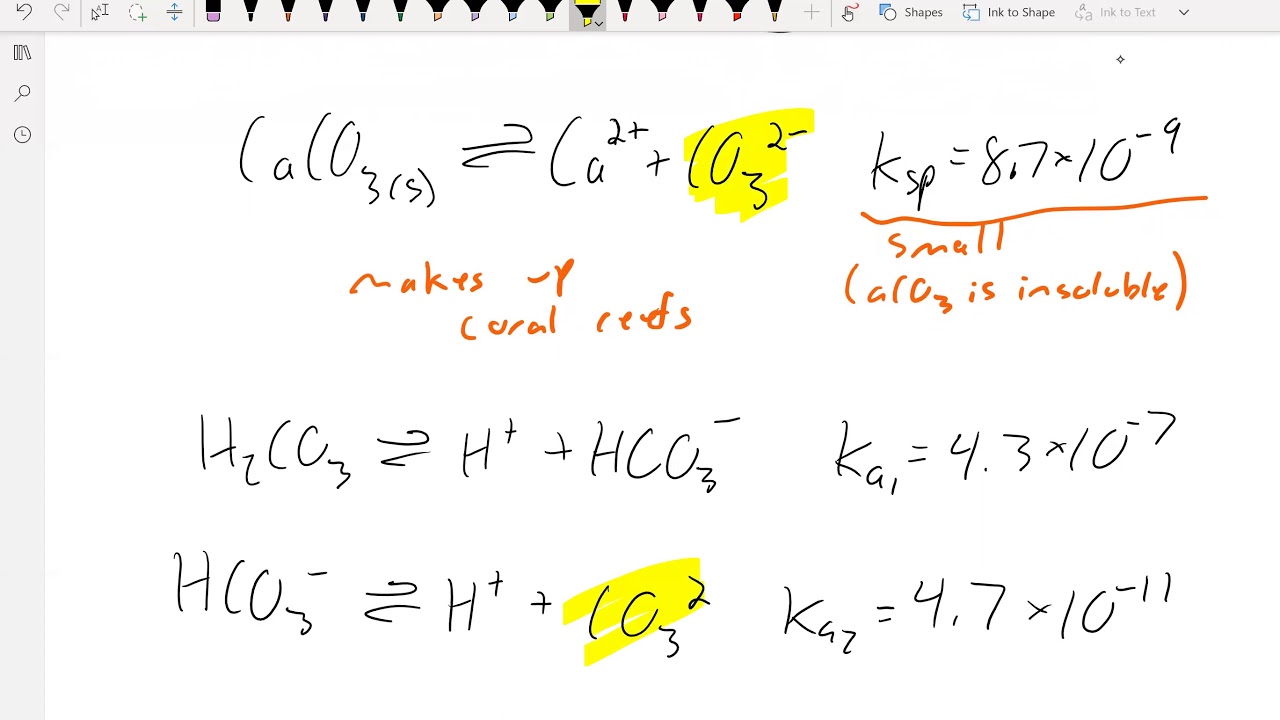 Shapes Ink to Shape Ink to Text
CaCO₃(s) ⇌ Ca²⁺ + CO₃²⁻ Ksp = 8.7×10⁻⁹
small
makes up CaCO₃ is insoluble
coral reefs
H₂CO₃ ⇌ H⁺ + HCO₃⁻ Ka₁ = 4.3×10⁻⁷
HCO₃⁻ ⇌ H⁺ + CO₃² Ka₂ = 4.7×10⁻¹¹